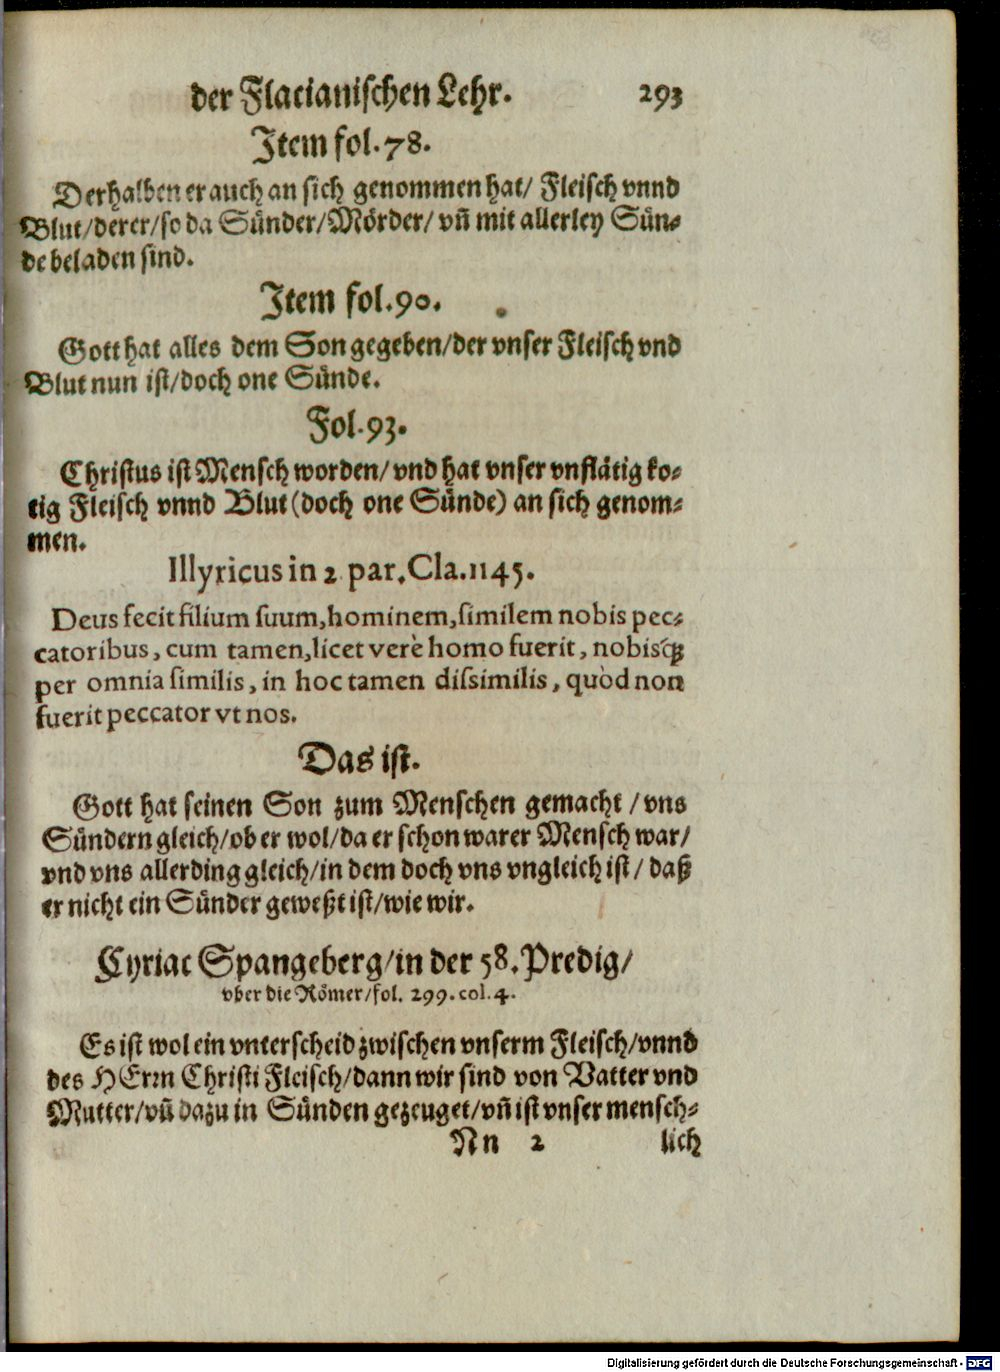 der Flacianischen Lehr. 293
Item fol. 78.
Derhalben er auch an sich genommen hat/ Fleisch vnnd
Blut/derer/so da Sünder/Mörder/ vn̄ mit allerley Sün-
de beladen sind.
Item fol. 90.
Gott hat alles dem Son gegeben/der vnser Fleisch vnd
Blut nun ist/doch one Sünde.
Fol. 93.
Christus ist Mensch worden/ vnd hat vnser vnflätig ko-
tig Fleisch vnnd Blut (doch one Sünde) an sich genom-
men.
Illyricus in 2 par. Cla. 1145.
Deus fecit filium suum, hominem, similem nobis pec-
catoribus, cum tamen, licet verè homo fuerit, nobisq́;
per omnia similis, in hoc tamen dissimilis, quòd non
fuerit peccator vt nos.
Das ist.
Gott hat seinen Son zum Menschen gemacht / vns
Sündern gleich/ob er wol/da er schon warer Mensch war/
vnd vns allerding gleich/in dem doch vns vngleich ist/ daß
er nicht ein Sünder geweßt ist/wie wir.
Cyriac Spangeberg/in der 58. Predig/
vber die Römer/fol. 299. col. 4.
Es ist wol ein vnterscheid zwischen vnserm Fleisch/vnnd
des HErrn Christi Fleisch/dann wir sind von Vatter vnd
Mutter/vn̄ dazu in Sünden gezeuget/vn̄ ist vnser mensch-
Nn 2 lich
Digitalisierung gefördert durch die Deutsche Forschungsgemeinschaft - DFG